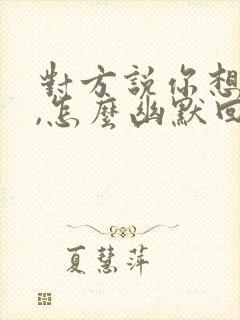 對方說你想
,怎麼幽默回
夏慧萍